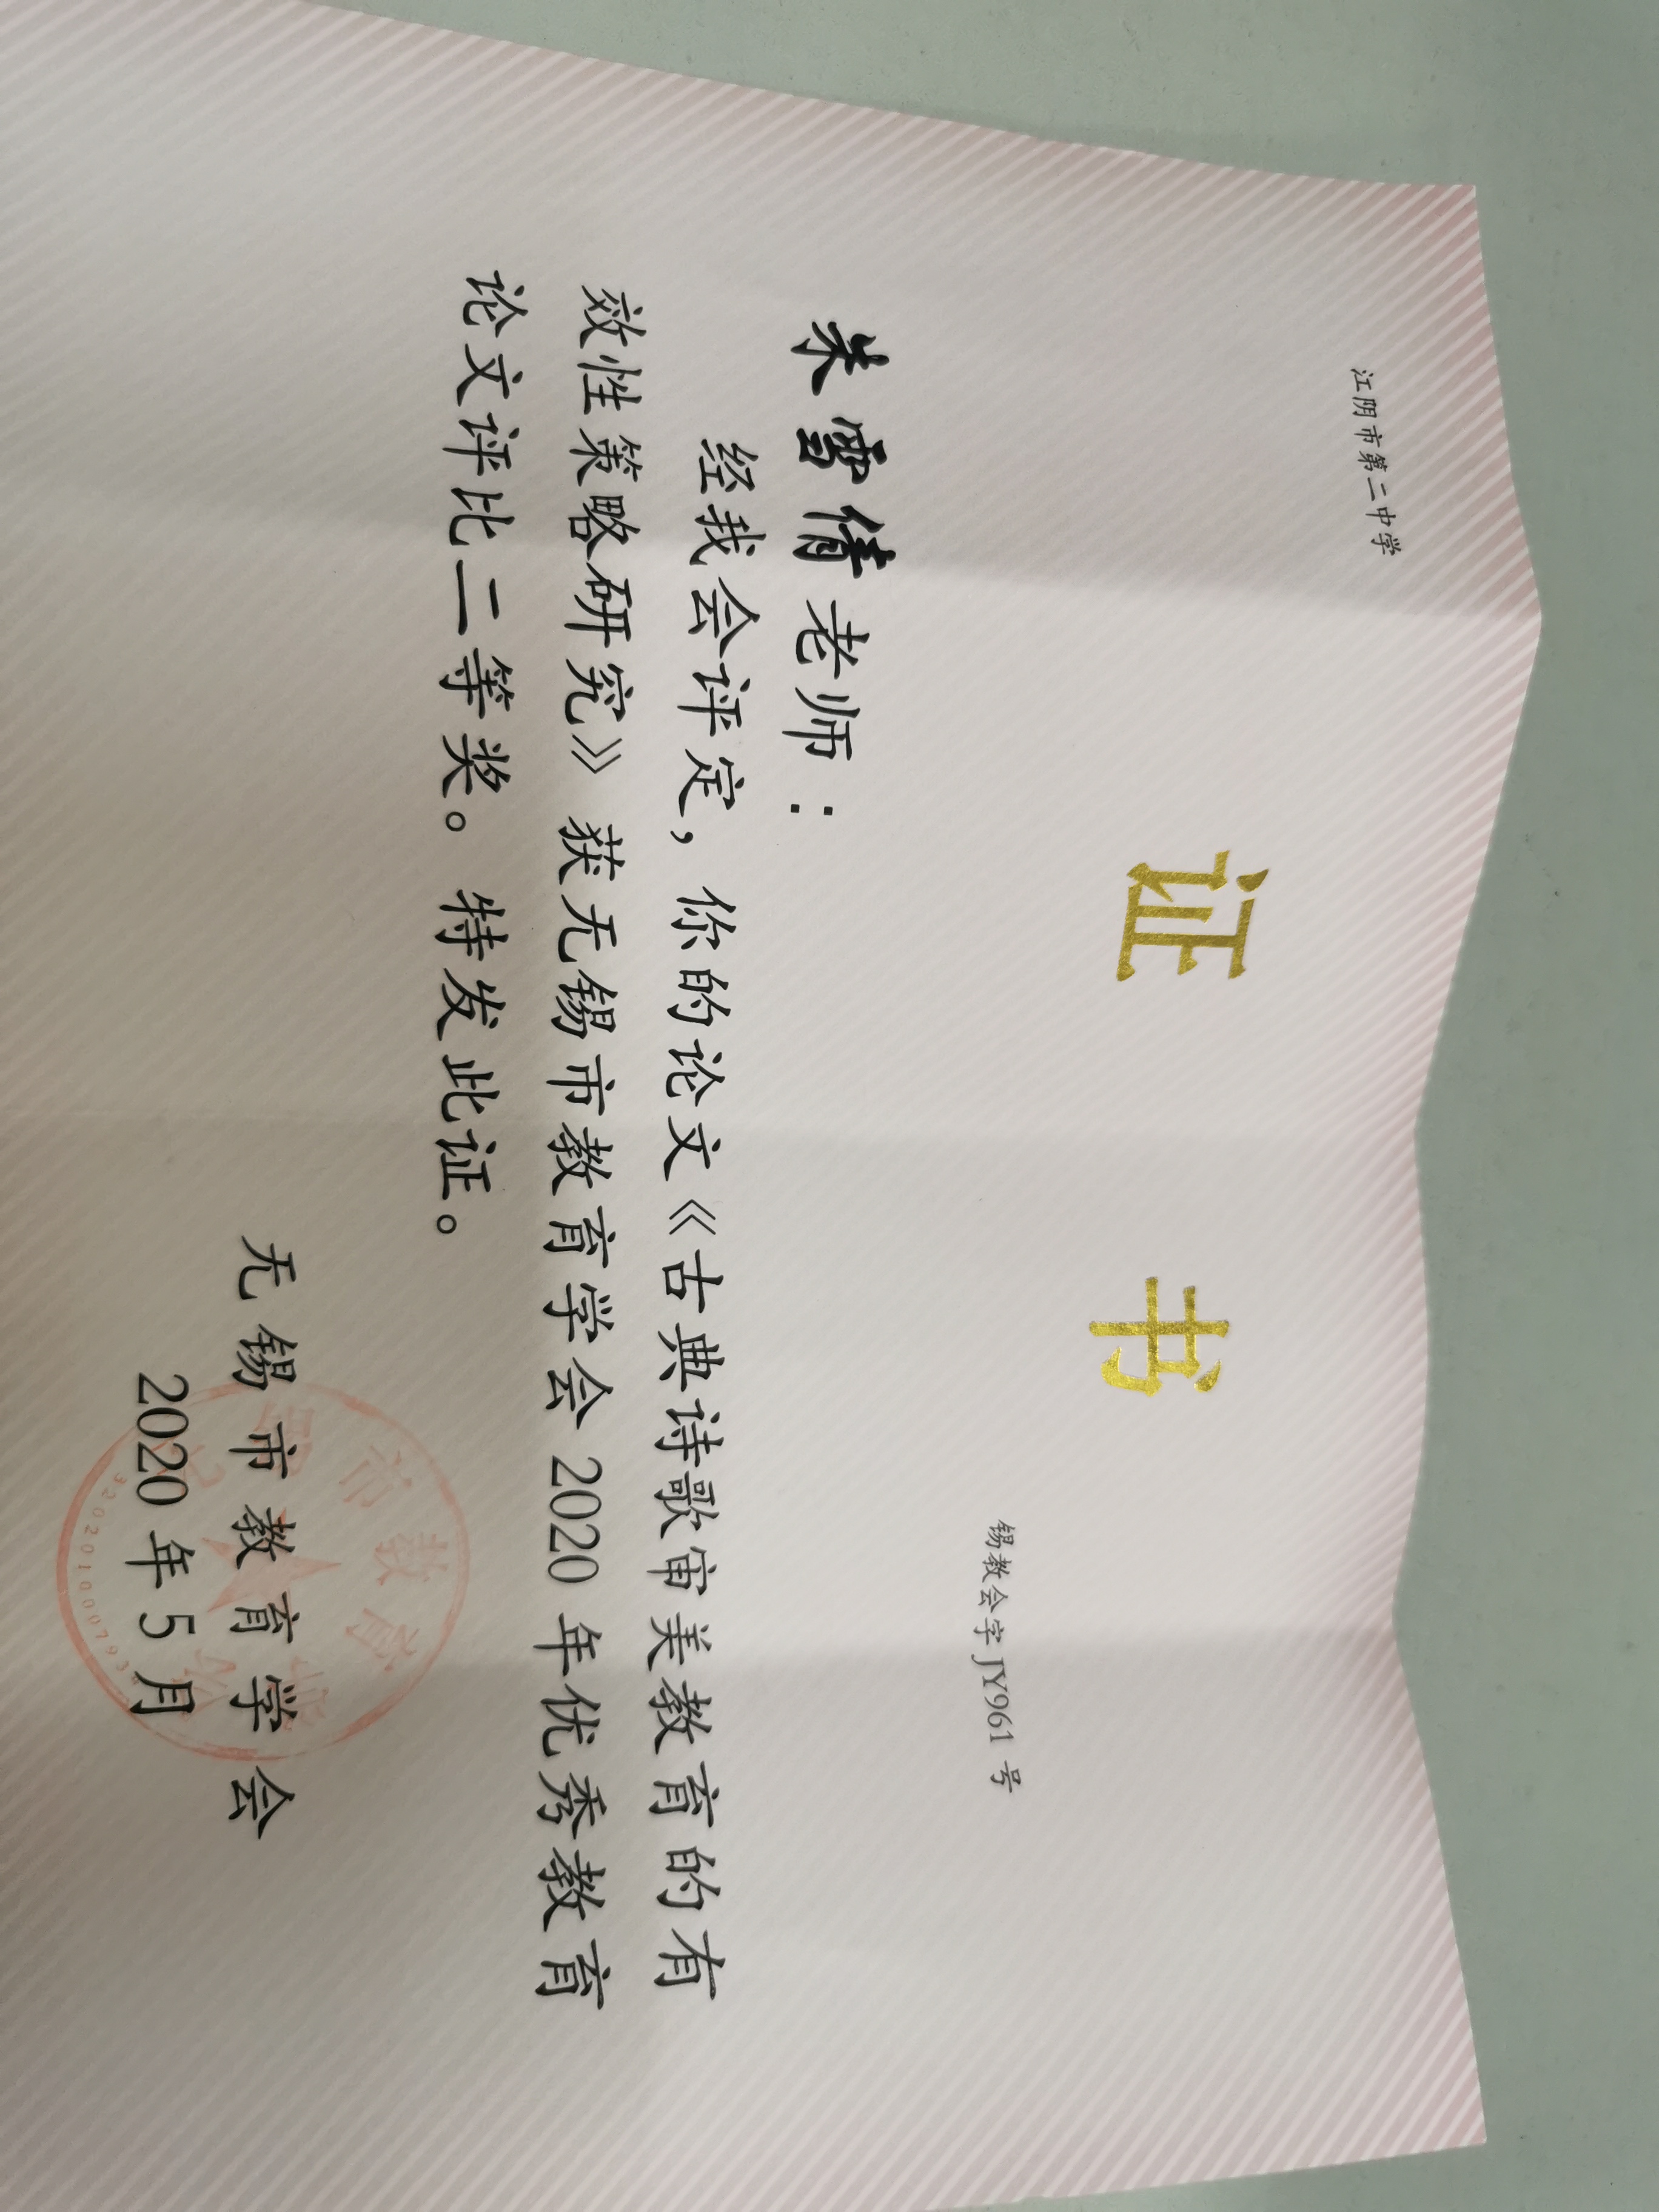 江阴市第二中学
证书
锡教会字 JY961 号
朱雪倩老师：
经我会评定，你的论文《古典诗歌审美教育的有
效性策略研究》获无锡市教育学会 2020 年优秀教育
论文评比二等奖。特发此证。
无锡市教育学会
2020 年 5 月